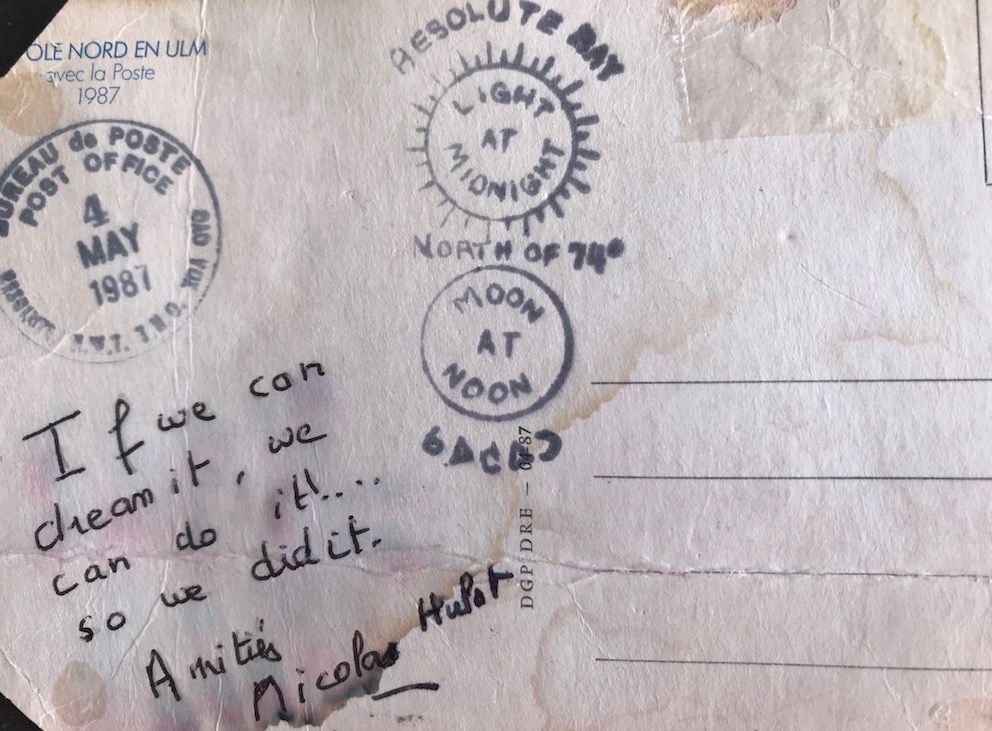 OLE NORD EN ULM
avec la Poste
1987
BUREAU de POSTE
POST OFFICE
4
MAY
1987
N.W.T. T.N.O.
RESOLUTE BAY
LIGHT
AT
MIDNIGHT
NORTH OF 74°
MOON
AT
NOON
If we can
dream it, we
can do it!....
so we did it.
Amitiés
Nicolas Hulot
DGP/DRE – 04-87